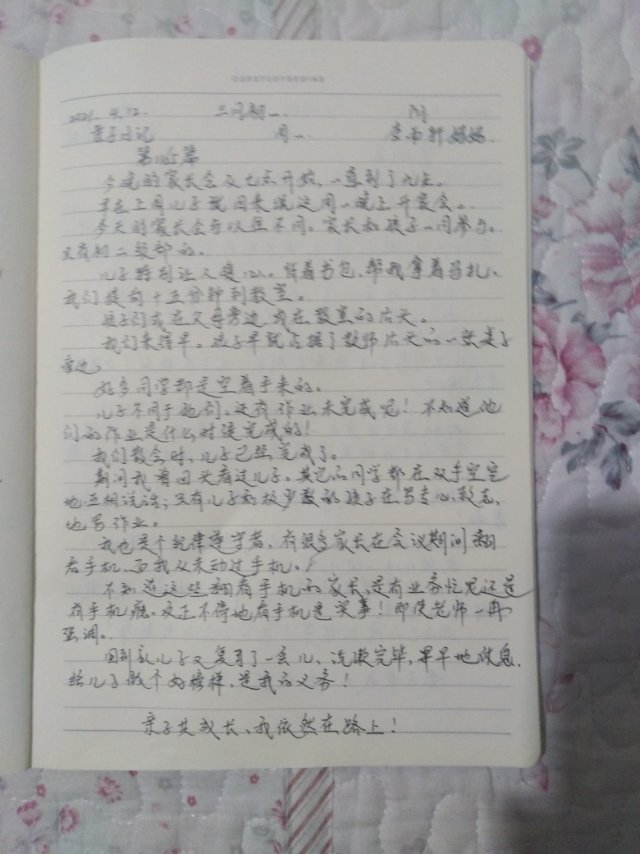 2021. 4.12. 三月初一. 阴
亲子日记 周一. 李 轩妈妈.
第 篇
今晚的家长会从七点开始,一直到了九点。
早在上周儿子就回来说这周一晚上开家长会。
今天的家长会与以往不同。家长和孩子一同参与。
还有初二级部的。
儿子特别让人暖心。背着书包,帮我拿着马扎,
我们提前十五分钟到教室。
孩子们或在父母旁边,或在教室的后头。
我们来得早。孩子早就占据了教师后头的一张桌子
旁边。
好多同学都是空着手来的。
儿子不同于他们,还有作业未完成呢!不知道他
们的作业是什么时候完成的!
我们散会时,儿子已经完成了。
期间我着回头看过儿子。其它的同学都在双手空空
地互相说话;只有儿子和极少数的孩子在专心致志
地写作业。
我也是个纪律遵守者,有很多家长在会议期间翻
看手机,而我从未动过手机。
不知道这些翻看手机的家长,是有业务忙呢还是
有手机瘾。反正不停地看手机是实事!即使老师一再
强调。
回到家儿子又复习了一会儿,洗漱完毕,早早地休息.
给儿子做个好榜样,是我的义务!
亲子共成长、我依然在路上!